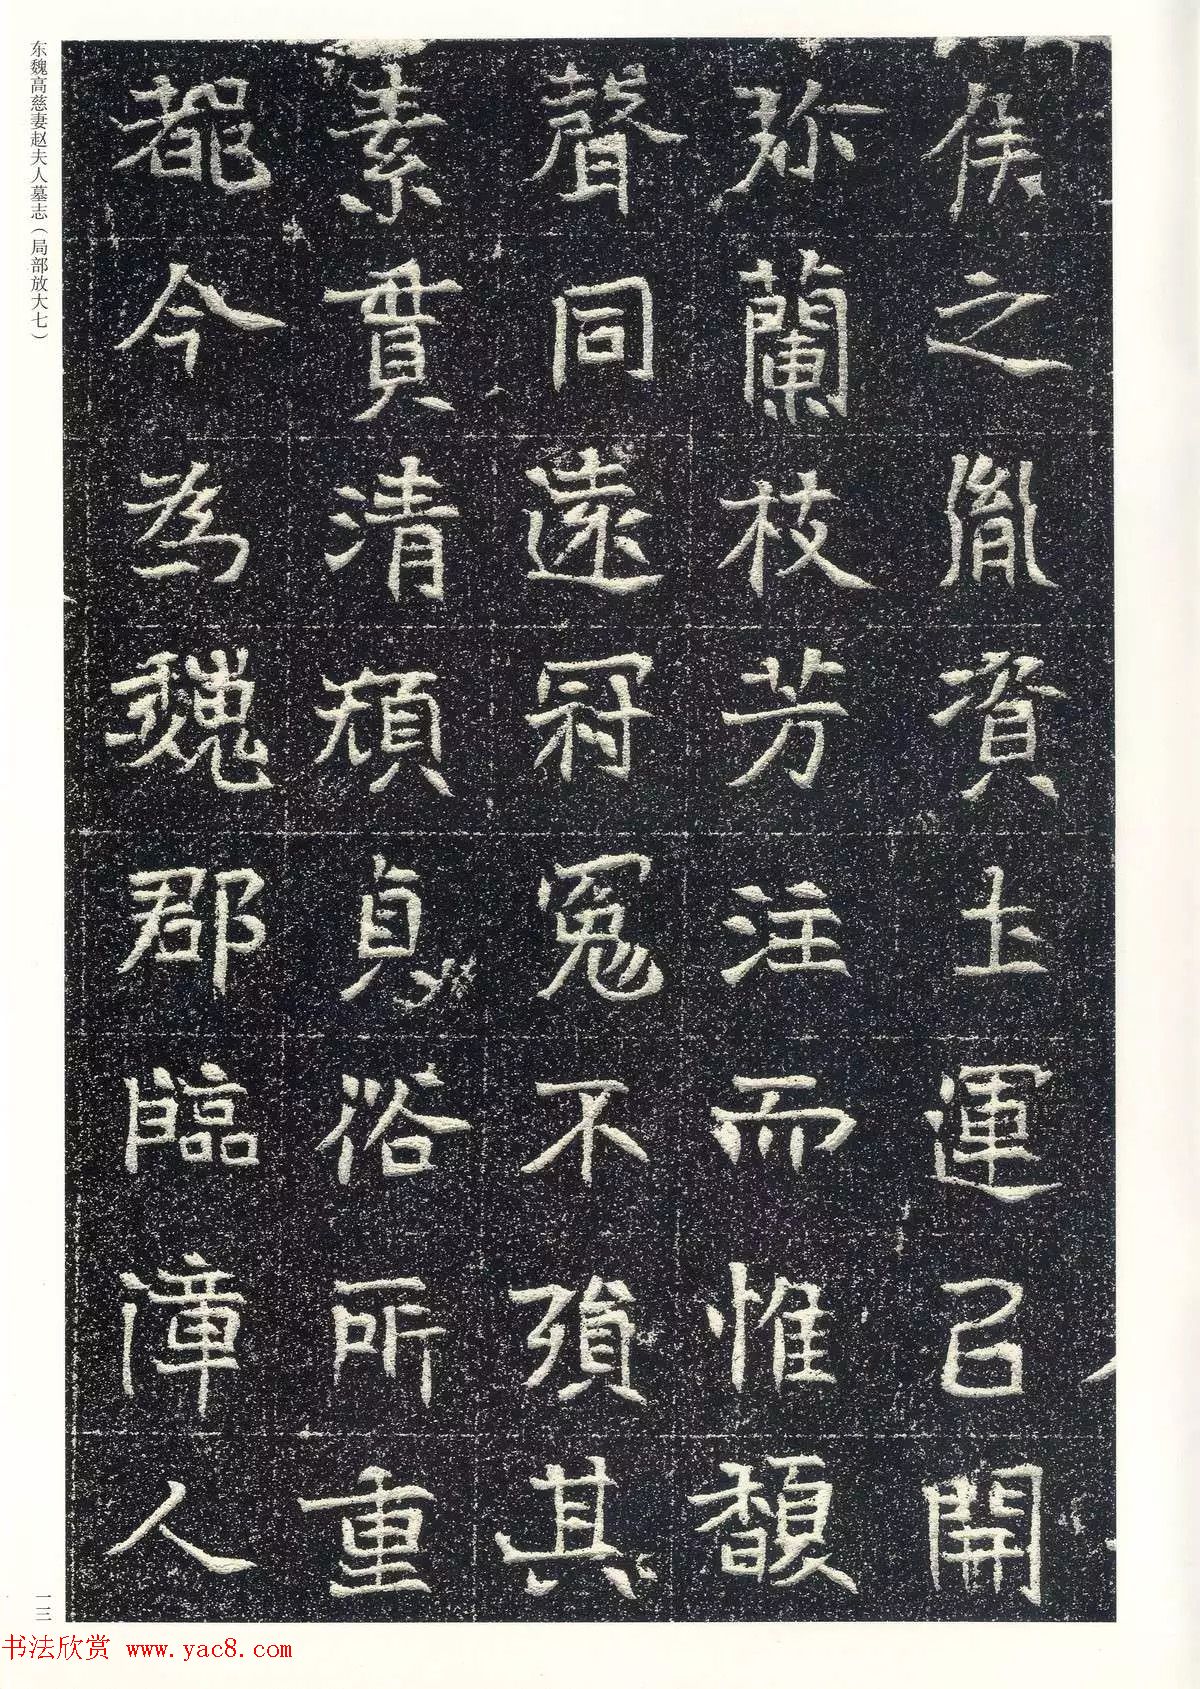 侯之胤資土運已開
弥蘭枝芳注而惟馥
聲同遠冠冕不殞其
素貫清頹貞浴所重
都今為魏郡臨漳人
东魏高慈妻赵夫人墓志（局部放大七）
一三
书法欣赏 www.yac8.com